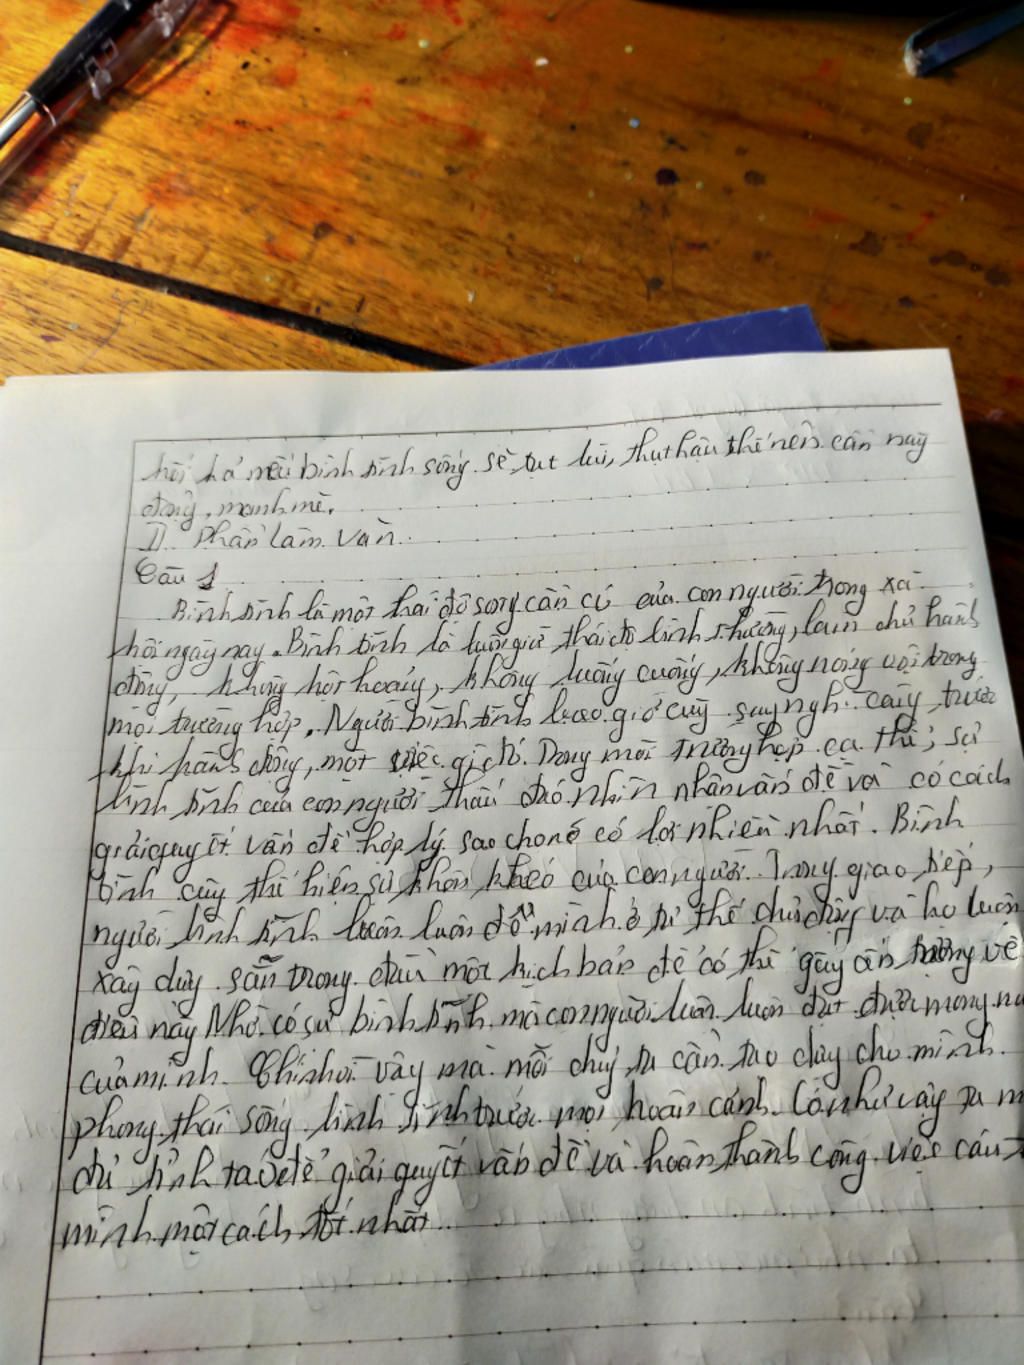 hối hả nếu bình tĩnh sống sẽ tụt lùi, thụt hậu thế nên cần nay
động, mạnh mẽ.
II. Phần làm văn.
Câu 1
Bình tĩnh là một thái độ sống cần có của con người trong xã
hội ngày nay. Bình tĩnh là luôn giữ thái độ bình thường, làm chủ hành
động, không hốt hoảng, không luống cuống, không nóng vội trong
mọi trường hợp. Người bình tĩnh bao giờ cũng suy nghĩ cũng trước
khi hành động, một việc gì đó. Trong mỗi trường hợp cụ thể, sự
bình tĩnh của con người thấu đáo nhìn nhận vấn đề và có cách
giải quyết vấn đề hợp lý sao cho nó có lợi nhiều nhất. Bình
tĩnh cũng thể hiện sự khôn khéo của con người. Trong giao tiếp,
người bình tĩnh luôn luôn để mình ở tư thế chủ động và họ luôn
xây dựng sẵn trong đầu một kịch bản để có thể gây ấn tượng về
điều này Nhờ có sự bình tĩnh mà con người luôn luôn đạt được mong
của mình. Chính vì vậy mà mỗi chúng ta cần tạo dựng cho mình
phong thái sống bình tĩnh trước mọi hoàn cảnh. Có như vậy ta m
đủ tỉnh táo để giải quyết vấn đề và hoàn thành công việc của
mình một cách tốt nhất